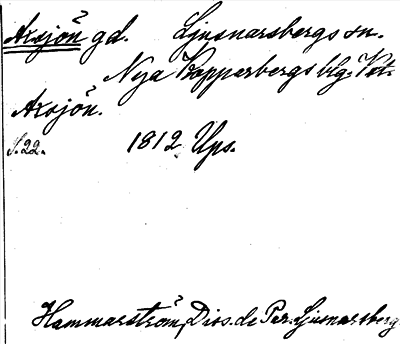 Axsjön gd. Ljusnarsbergs sn.
Nya Kopparbergs blg. Vst.
Axsjön.
S. 22. 1812 Ups.
Hammarström, Diss. de Par. Ljusnarsberg